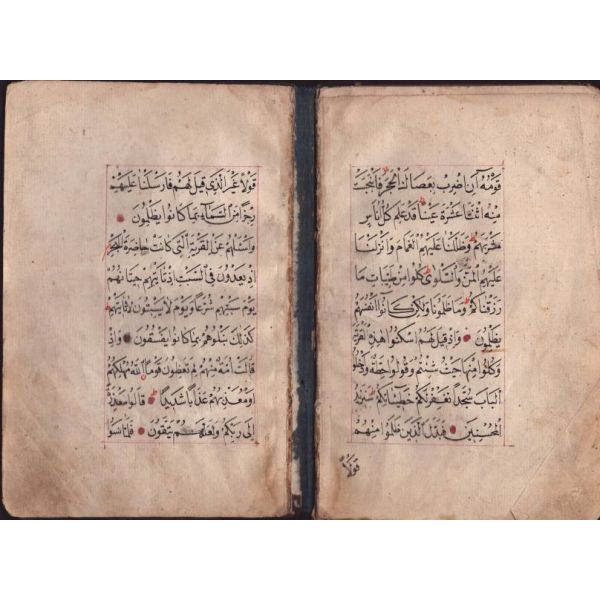 قَوْمُهُ أَنِ اضْرِبْ بِعَصَاكَ الْحَجَرَ فَانْبَجَسَتْ
مِنْهُ اثْنَتَا عَشْرَةَ عَيْنًا قَدْ عَلِمَ كُلُّ أُنَاسٍ
مَشْرَبَهُمْ وَظَلَّلْنَا عَلَيْهِمُ الْغَمَامَ وَأَنْزَلْنَا
عَلَيْهِمُ الْمَنَّ وَالسَّلْوَى كُلُوا مِنْ طَيِّبَاتِ مَا
رَزَقْنَاكُمْ وَمَا ظَلَمُونَا وَلَكِنْ كَانُوا أَنْفُسَهُمْ
يَظْلِمُونَ وَإِذْ قِيلَ لَهُمُ اسْكُنُوا هَذِهِ الْقَرْيَةَ
وَكُلُوا مِنْهَا حَيْثُ شِئْتُمْ وَقُولُوا حِطَّةٌ وَادْخُلُوا
الْبَابَ سُجَّدًا نَغْفِرْ لَكُمْ خَطِيئَاتِكُمْ سَنَزِيدُ
الْمُحْسِنِينَ فَبَدَّلَ الَّذِينَ ظَلَمُوا مِنْهُمْ
قَوْلًا
قَوْلًا غَيْرَ الَّذِي قِيلَ لَهُمْ فَأَرْسَلْنَا عَلَيْهِمْ
رِجْزًا مِنَ السَّمَاءِ بِمَا كَانُوا يَظْلِمُونَ
وَاسْأَلْهُمْ عَنِ الْقَرْيَةِ الَّتِي كَانَتْ حَاضِرَةَ الْبَحْرِ
إِذْ يَعْدُونَ فِي السَّبْتِ إِذْ تَأْتِيهِمْ حِيتَانُهُمْ
يَوْمَ سَبْتِهِمْ شُرَّعًا وَيَوْمَ لَا يَسْبِتُونَ لَا تَأْتِيهِمْ
كَذَلِكَ نَبْلُوهُمْ بِمَا كَانُوا يَفْسُقُونَ وَإِذْ
قَالَتْ أُمَّةٌ مِنْهُمْ لِمَ تَعِظُونَ قَوْمًا اللَّهُ مُهْلِكُهُمْ
أَوْ مُعَذِّبُهُمْ عَذَابًا شَدِيدًا قَالُوا مَعْذِرَةً
إِلَى رَبِّكُمْ وَلَعَلَّهُمْ يَتَّقُونَ فَلَمَّا نَسُوا